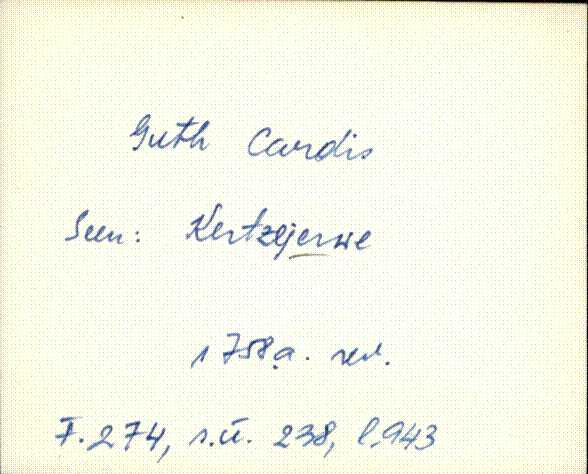 Guth Cardis
Seen: Kertzejerwe
1758 a. rev.
F. 274, s.ü. 238, l. 943